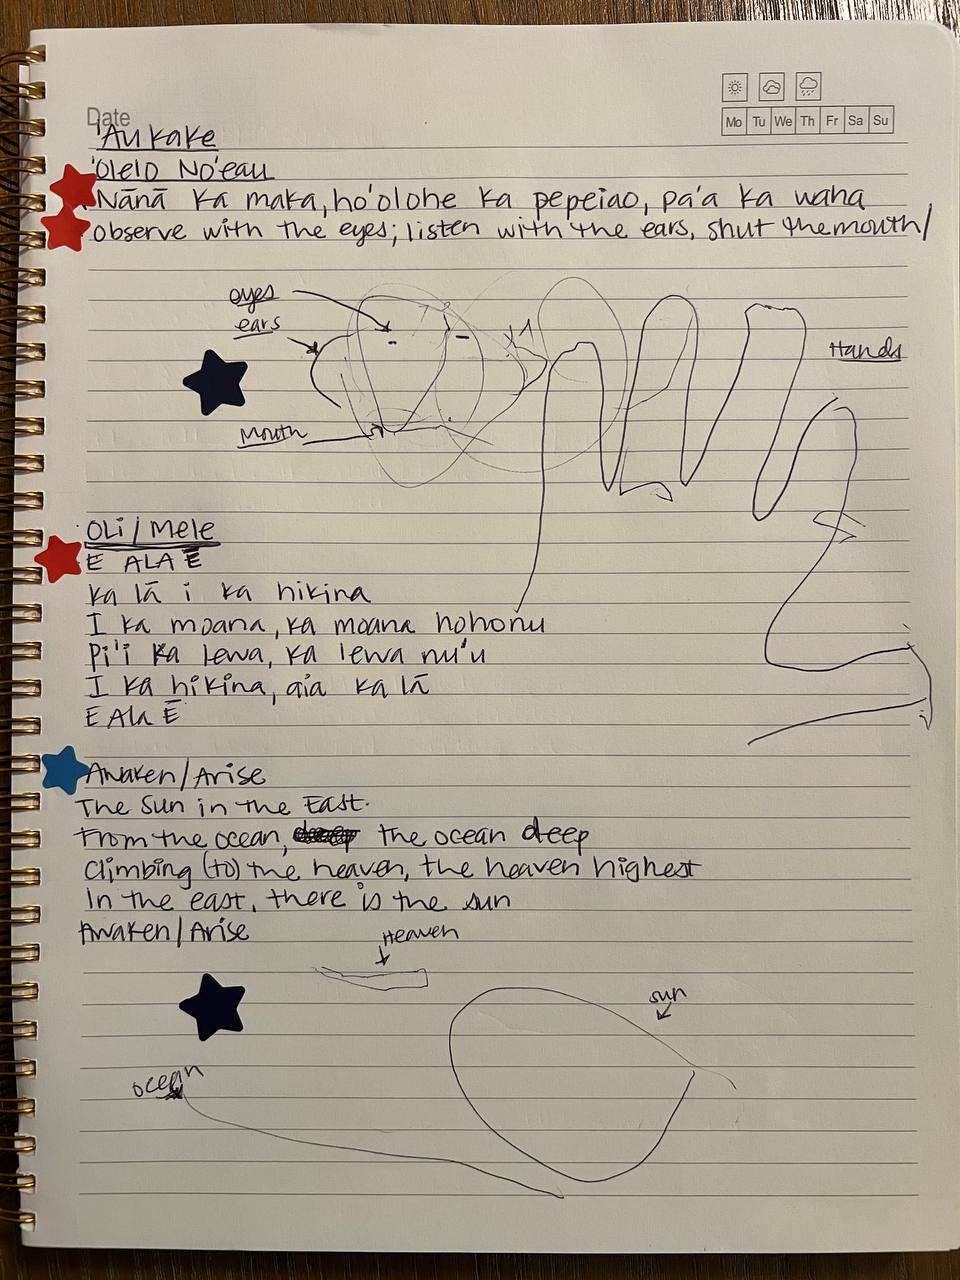 Date
Mo Tu We Th Fr Sa Su
'Aukake
'Olelo No'eau
Nānā ka maka, ho'olohe ka pepeiao, pa'a ka waha
observe with the eyes; listen with the ears, shut the mouth/
eyes
ears
Hands
Mouth
OLi/Mele
E ALA Ē
Ka lā i ka hikina
I ka moana, ka moana hohonu
Pi'i ka lewa, ka lewa nu'u
I ka hikina, aia ka lā
E Ala Ē
Awaken/Arise
The Sun in the East.
From the ocean, the ocean deep
Climbing (to) the heaven, the heaven highest
In the east, there is the sun
Awaken/Arise
Heaven
sun
ocean